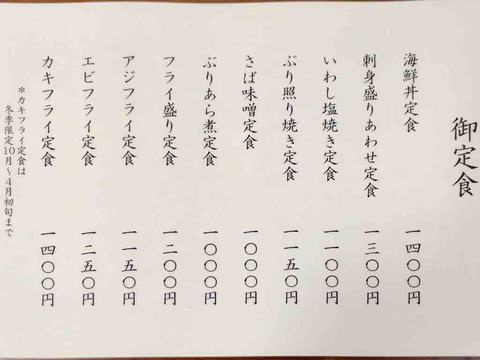 御定食
海鮮丼定食 一四〇〇円
刺身盛りあわせ定食 一三〇〇円
いわし塩焼き定食 一一〇〇円
ぶり照り焼き定食 一一五〇円
さば味噌定食 一〇〇〇円
ぶりあら煮定食 一〇〇〇円
フライ盛り定食 一二〇〇円
アジフライ定食 一一五〇円
エビフライ定食 一二五〇円
カキフライ定食 一四〇〇円
*カキフライ定食は
冬季限定10月~4月初旬まで